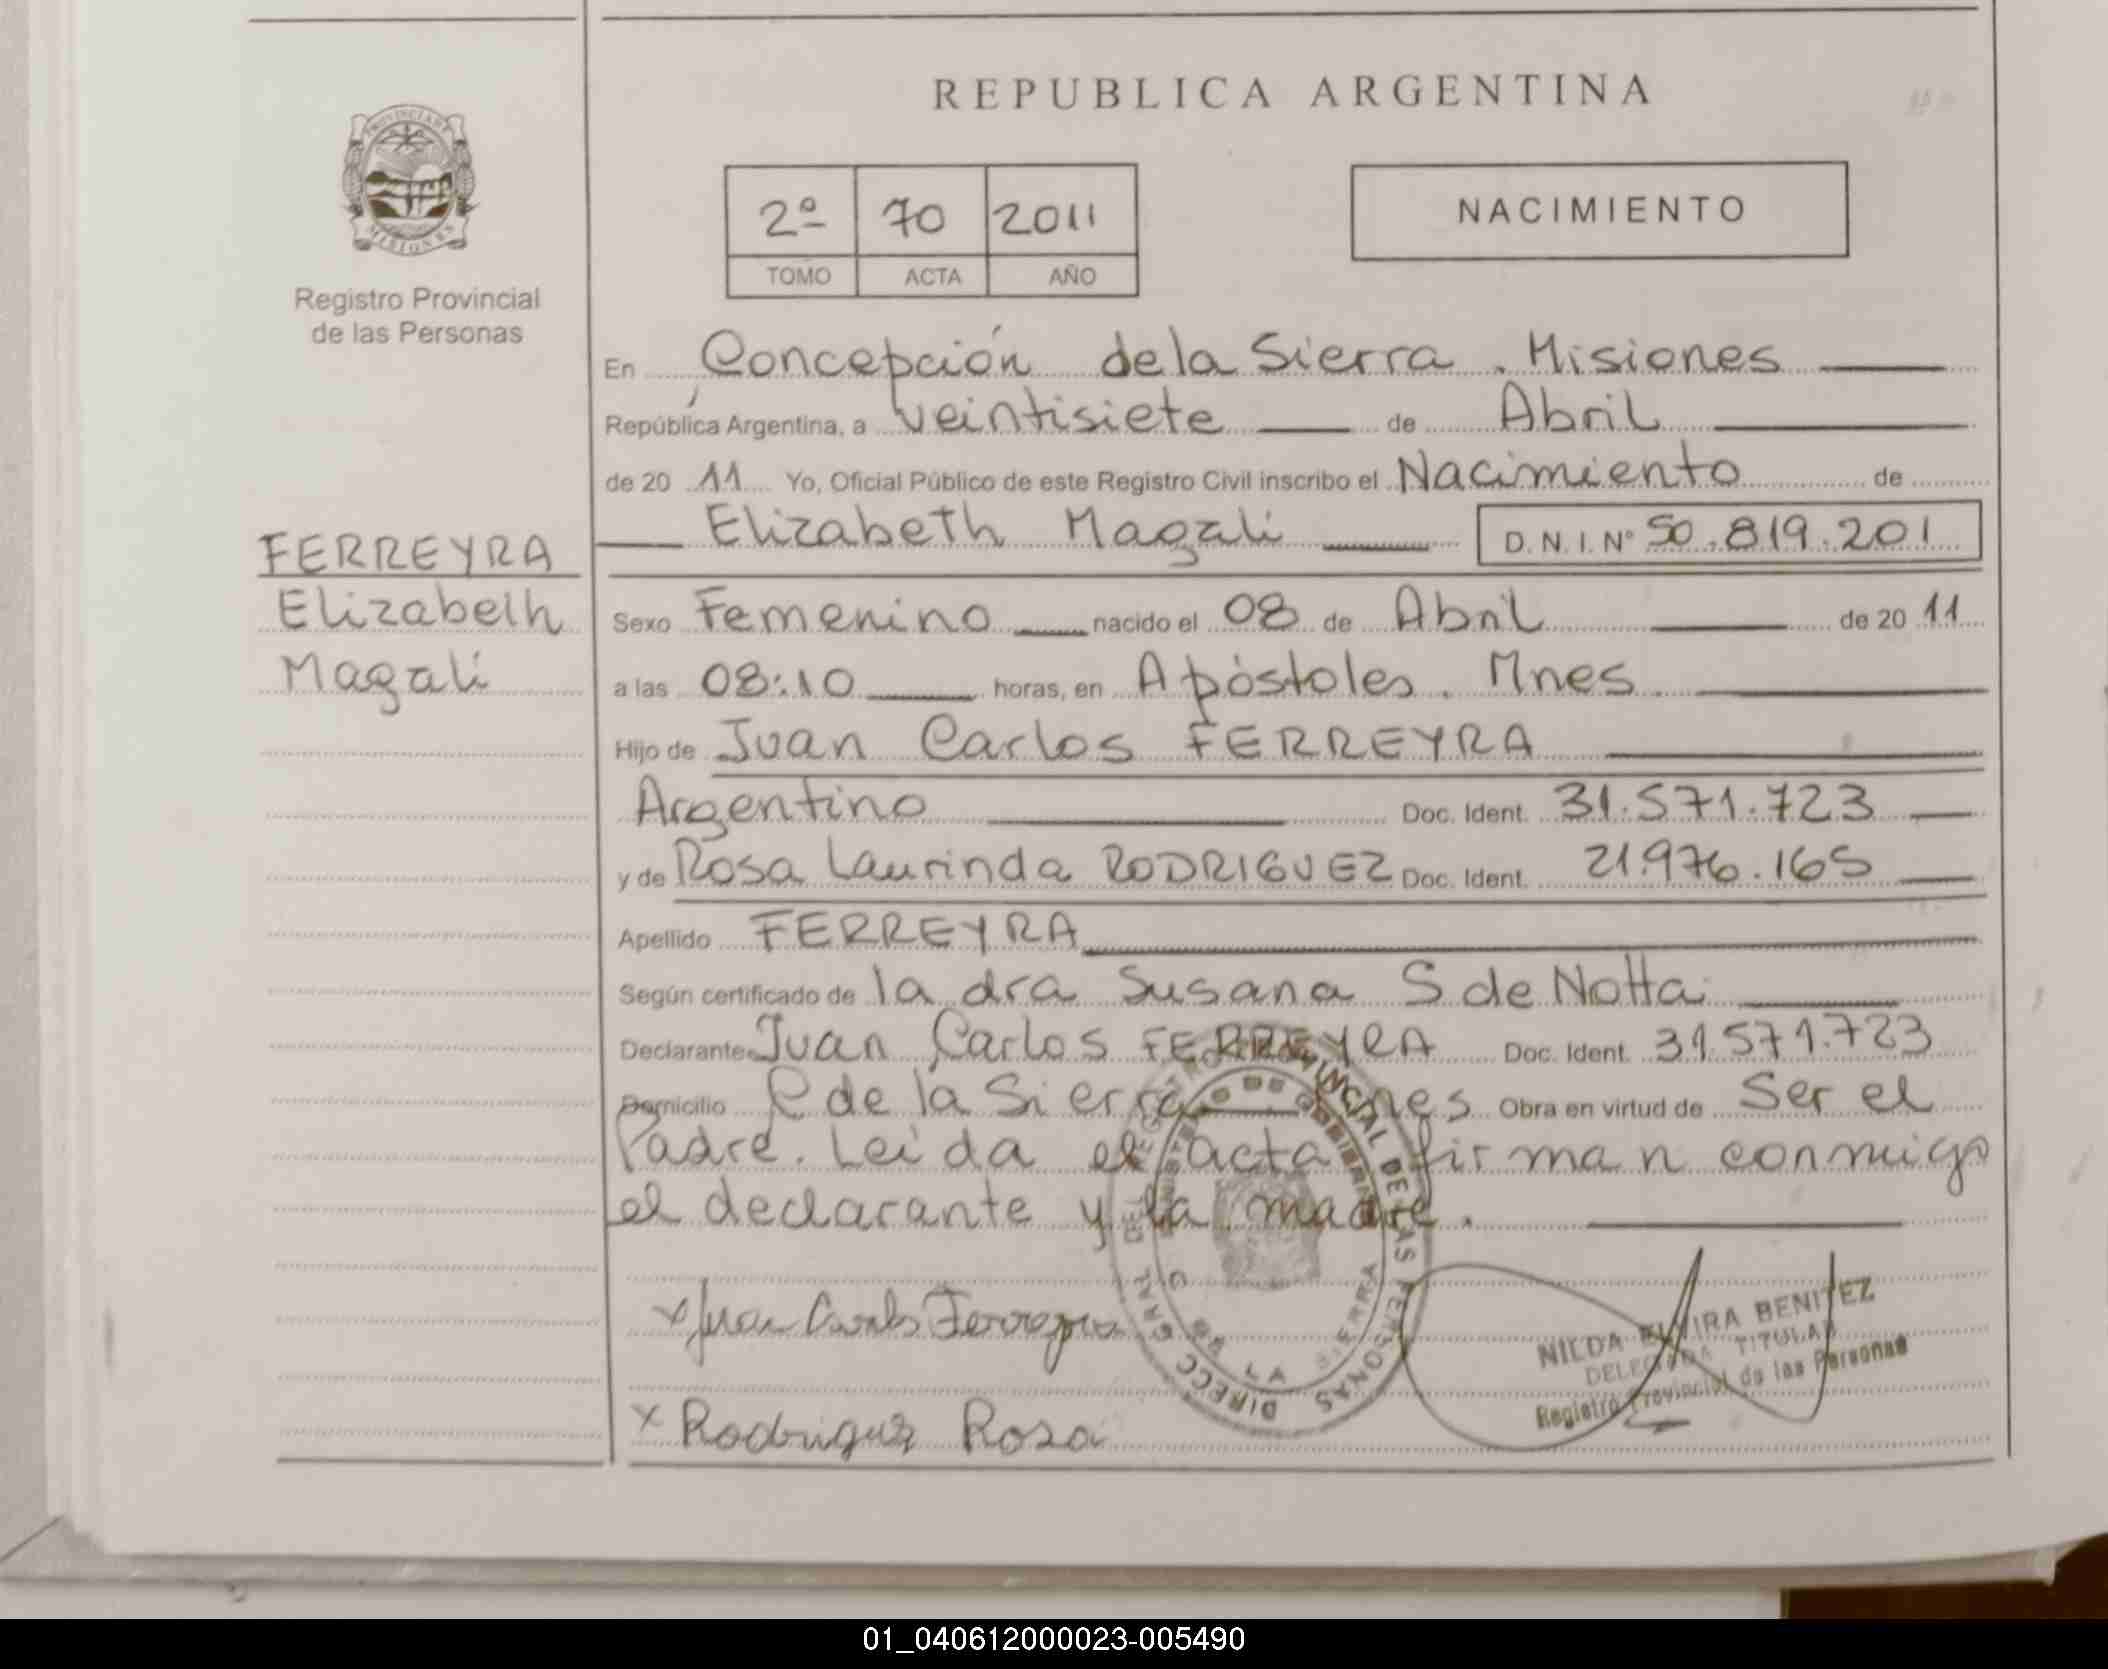 REPUBLICA ARGENTINA
PROVINCIA DE
MISIONES
Registro Provincial
de las Personas
2º 70 2011
TOMO ACTA AÑO
NACIMIENTO
En Concepción de la Sierra . Misiones
República Argentina, a veintisiete de Abril
de 20 11 Yo, Oficial Público de este Registro Civil inscribo el Nacimiento de
Elizabeth Magali D.N.I.Nº 50.819.201
FERREYRA
Elizabeth
Magali
Sexo Femenino nacido el 08 de Abril de 20 11
a las 08:10 horas, en Apóstoles . Mnes.
Hijo de Juan Carlos FERREYRA
Argentino Doc. Ident. 31.571.723
y de Rosa Laurinda RODRIGUEZ Doc. Ident. 21.976.165
Apellido FERREYRA
Según certificado de la dra Susana S de Notta
Declarante Juan Carlos FERREYRA Doc. Ident. 31.571.723
Domicilio C de la Sierra Obra en virtud de Ser el
Padre. Leída el acta firman conmigo
el declarante y la madre.
x Juan Carlos Ferreyra
x Rodriguez Rosa
DIRECC GRAL DEL REGISTRO PROVINCIAL DE LAS PERSONAS
C DE LA SIERRA
NILDA ELVIRA BENITEZ
DELEGADA TITULAR
Registro Provincial de las Personas
01_040612000023-005490